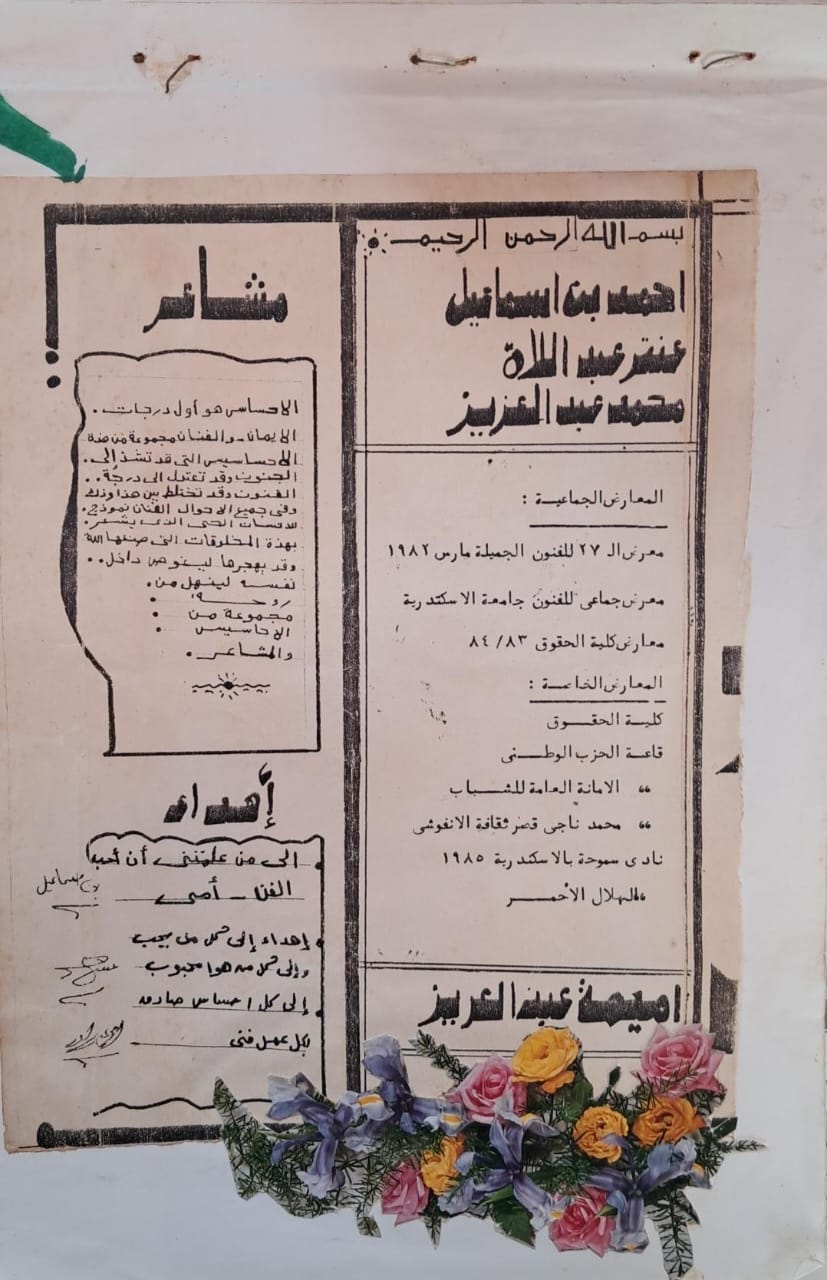 بسم الله الرحمن الرحيم
احمد بن اسماعيل
عنتر عبد اللاة
محمد عبد العزيز
المعارض الجماعية :
معرض الـ ٢٧ للفنون الجميلة مارس ١٩٨٢
معرض جماعى للفنون جامعة الاسكندرية
معارض كلية الحقوق ٨٣/ ٨٤
المعارض الخاصة :
كلية الحقوق
قاعة الحزب الوطنى
" الامانة العامة للشباب
" محمد ناجى قصر ثقافة الانفوشى
نادى سموحة بالاسكندرية ١٩٨٥
" الهلال الأحمر
اميمة عبد العزيز
مشاعر
الاحساس هو أول درجات .
الايمان - والفنان مجموعة من هذه
الاحساسيس التى قد تشذ إلى .
الجنون وقد تعتدل الى درجة ..
الفنون وقد تختلط بين هذا وذلك
وفى جميع الاحوال الفنان نموذج .
للانسان الحى الذى يشعر .
بهذة المخلوقات التى صنعها الله
وقد يهجرها ليغوص داخل ..
نفسه لينهل من .
روحه .
مجموعة من .
الاحاسيس .
والمشاعر .
أهداء
الى من علمتنى أن أحب
الفن - أمى
إهداء إلى كل من يحب
وإلى كل من هوا محبوب
إلى كل احساس صادق
بكل عمل فنى